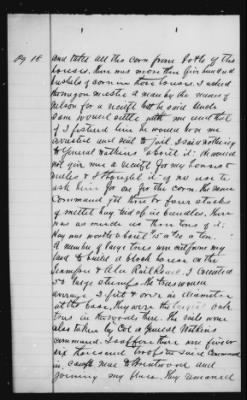 Pg 18
and took all this corn from both of the
houses. there was more than five hundred
bushels of corn in these houses. I asked
the wagon master a man by the name of
Nelson for a receipt but he said Uncle
Sam would settle with me and that
if I pestered him he would have me
arrested and sent to jail. I said nothing
to General Watkins about it. He would
not give me a receipt for my horses &
mules & I thought it of no use to
ask him for one for the corn. the same
Command got three to four stacks
of it in bundles. there
was as much as three tons of it.
Hay was worth about 15 a ton.
A number of large trees were cut from my
land to build a block house on the
Tennessee & Ala Rail Road. I counted
50 large stumps the trees would
average 2 feet & over in diameter
at the base. they were the largest
trees in the woods there. The rails were
also taken by Col or General Watkins
command. I suppose there were five or
six thousand troops in said command
in camp near to Brentwood and
joining my place. They